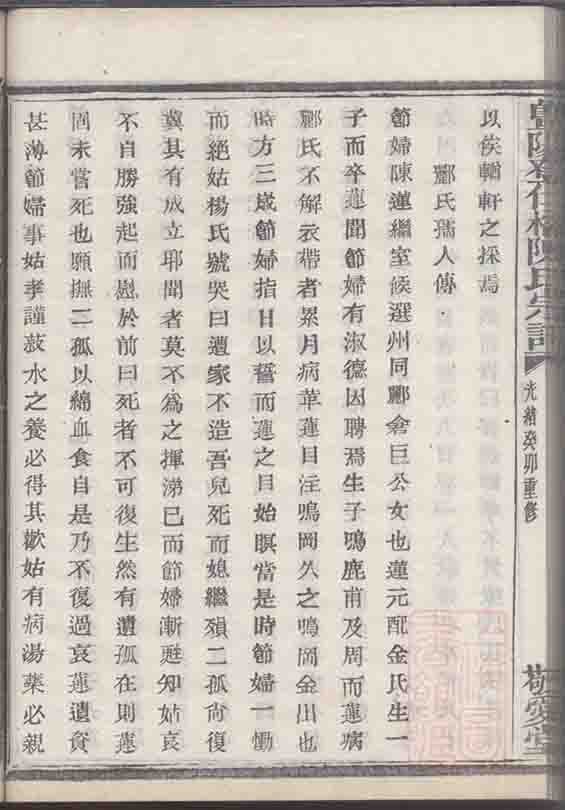 以俟輶軒之採焉
酈氏孺人傳
節婦陳蓮繼室候選州同酈倉巨公女也蓮元配金氏生一
子而卒蓮聞節婦有淑德因聘焉生子鳴鹿甫及周而蓮病
酈氏不解衣帶者累月病革蓮目注鳴岡久之鳴岡金出也
時方三歲節婦指日以誓而蓮之目始瞑當是時節婦一慟
而絕姑楊氏號哭曰遭家不造吾兒死而媳繼殞二孤尙復
冀其有成立耶聞者莫不爲之揮涕已而節婦漸甦知姑哀
不自勝強起而慰於前曰死者不可復生然有遺孤在則蓮
固未嘗死也願撫二孤以綿血食自是乃不復過哀蓮遺貲
甚薄節婦事姑孝謹菽水之養必得其歡姑有病湯藥必親
陳氏宗譜
光緒癸卯重修
敬愛堂